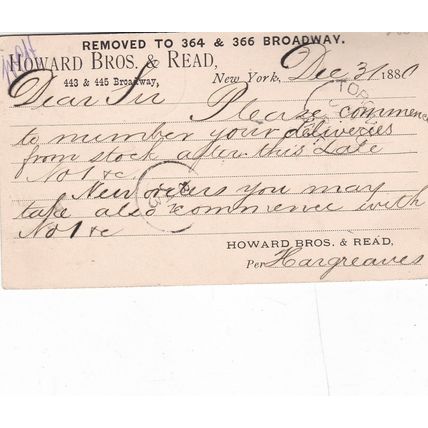 REMOVED TO 364 & 366 BROADWAY.
HOWARD BROS. & READ,
443 & 445 Broadway,
New York, Dec 31 1880
Dear Sir Please commence
to number your deliveries
from stock after this date
No 1 &c
New orders you may
take also commence with
No 1 &c
HOWARD BROS. & READ,
Per Hargreaves